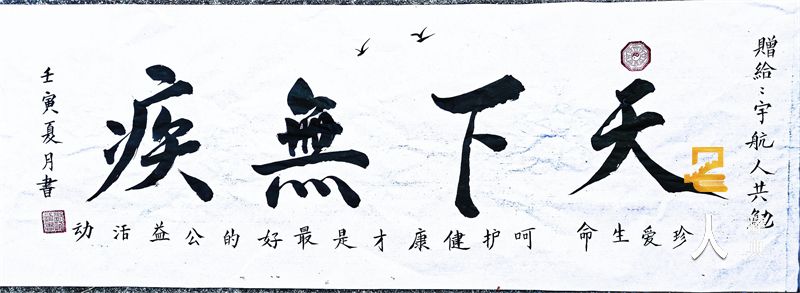 贈給:宇航人共勉
天下無疾
珍爱生命 呵护健康才是最好的公益活动
壬寅夏月書
人